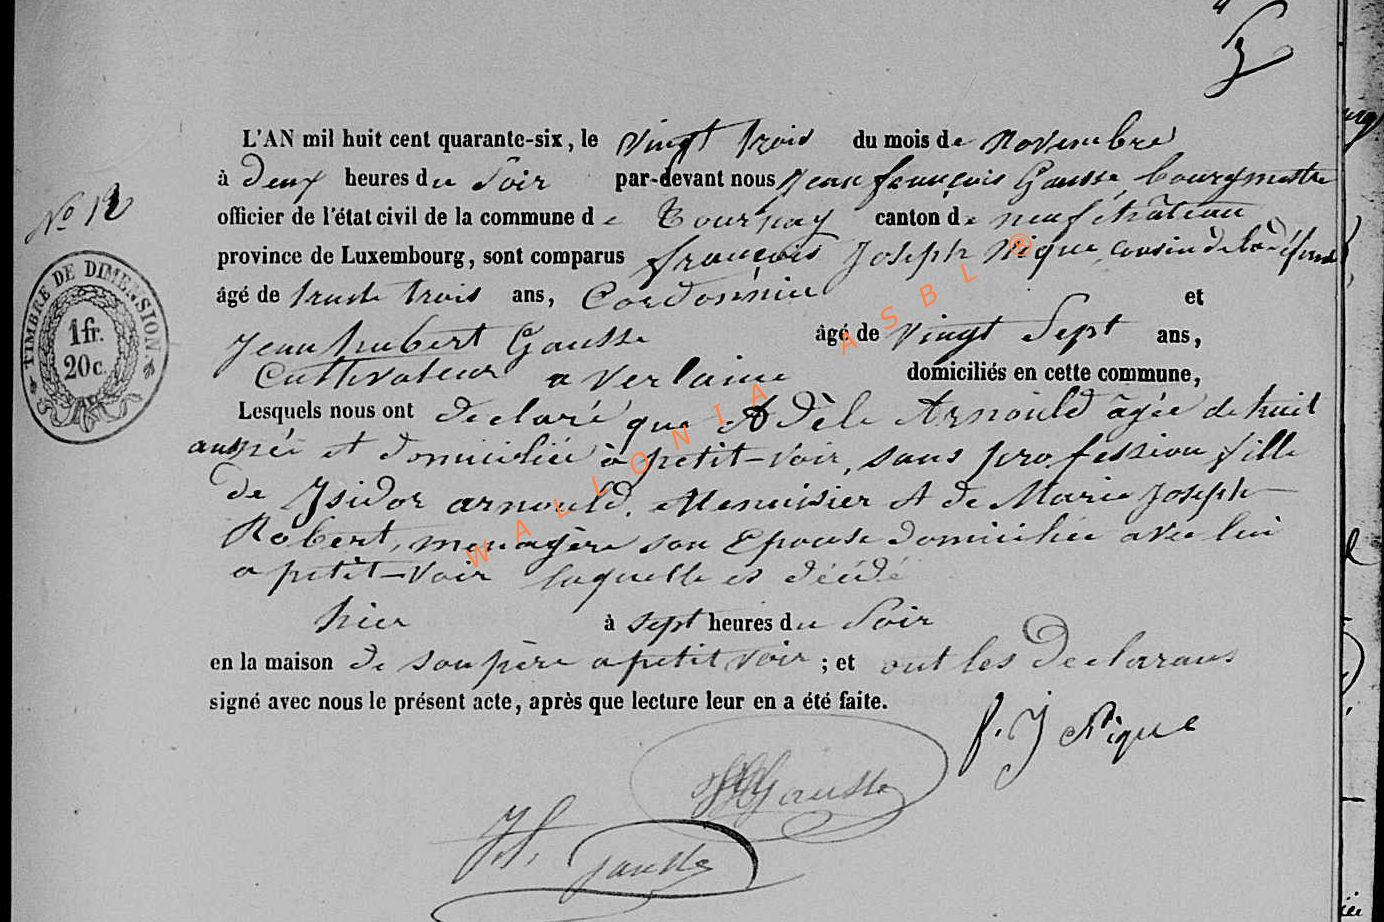 No 12
TIMBRE DE DIMENSION
1 fr.
20 c.
L'AN mil huit cent quarante-six, le vingt trois du mois de Novembre
à deux heures du Soir par-devant nous Jean françois Gausse, bourgmestre
officier de l'état civil de la commune de Tournay canton de neufchâteau
province de Luxembourg, sont comparus françois Joseph Nique, cousin de la défunte
âgé de trente trois ans, Cordonnier et
Jean hubert Gausse âgé de vingt Sept ans,
Cultivateur a Verlaine domiciliés en cette commune,
Lesquels nous ont declaré que Adèle Arnould âgée de huit
ans née et domiciliée à petit-Voir, sans profession fille
de Isidor arnould, Menuisier et de Marie Joseph
Robert, menagère son Epouse domiciliée avec lui
a petit-Voir laquelle es décédé
hier à sept heures du Soir
en la maison de son père a petit voir ; et ont les declarans
signé avec nous le présent acte, après que lecture leur en a été faite.
f. J Nique
Gausse
J.h. Gausse
WALLONIA ASBL ®